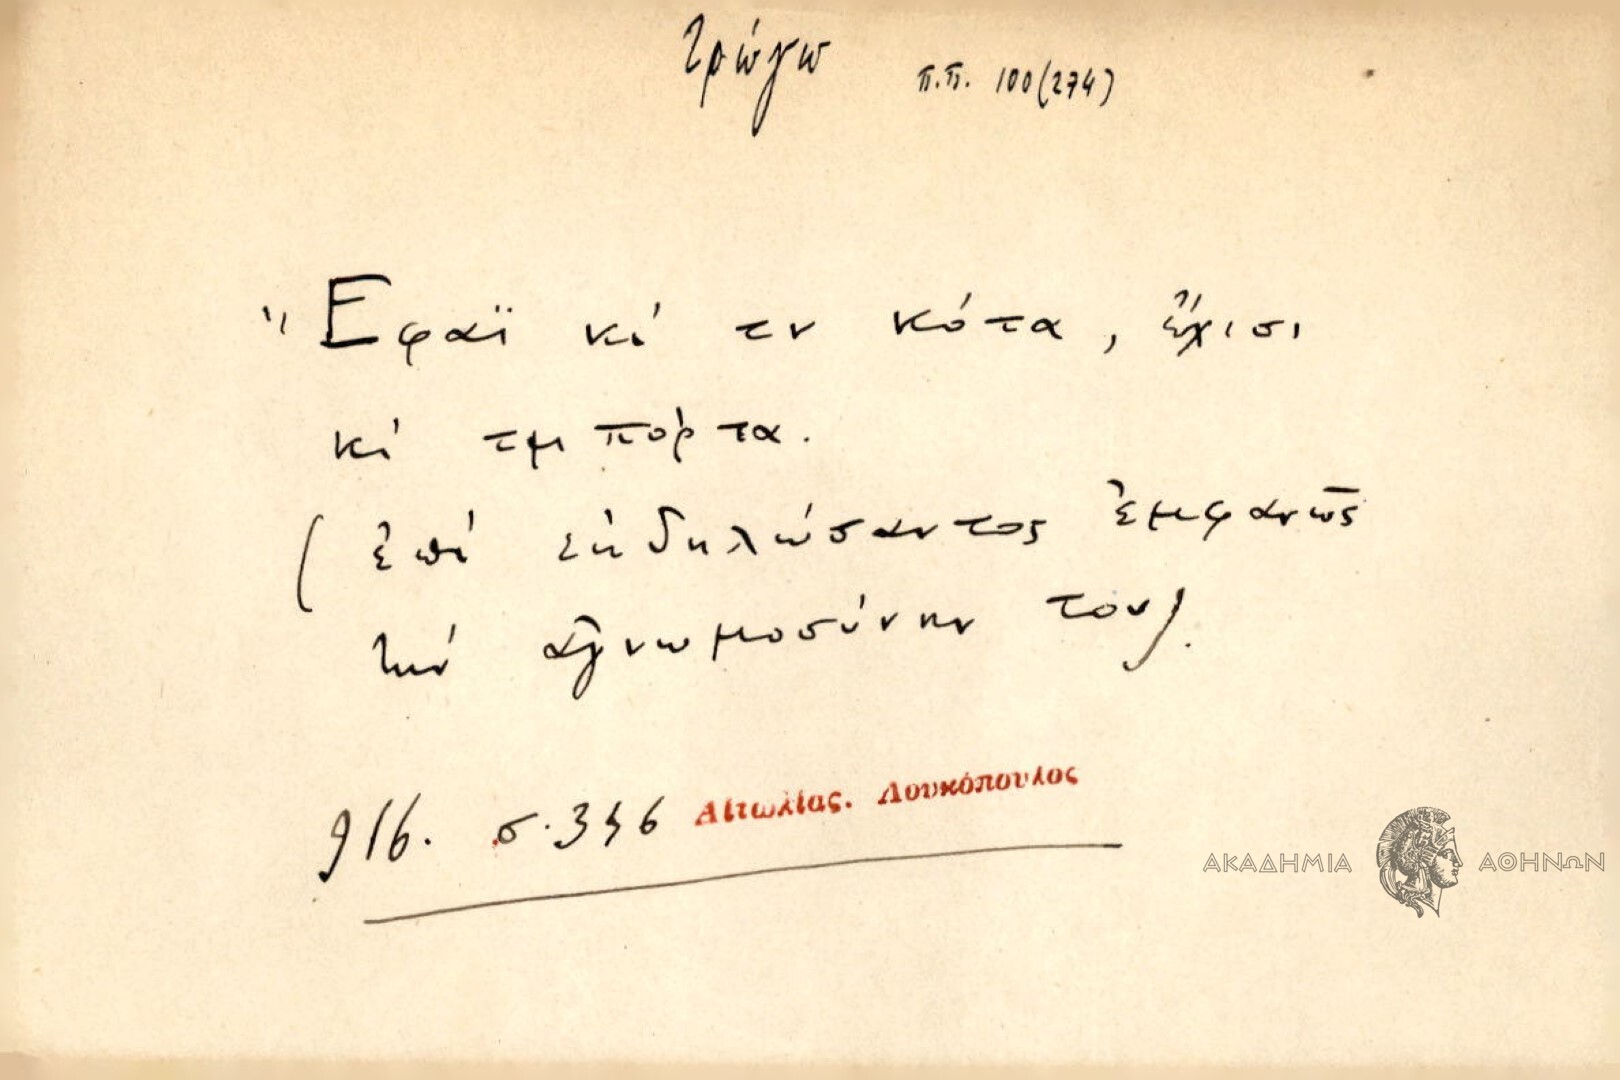 τρώγω π.π. 100(274)
Ἔφαϊ κὶ τν κότα, ἔχισι
κὶ τμ πόρτα.
(ἐπὶ ἐκδηλώσαντος ἐμφανῶς
τὴν ἀγνωμοσύνην του).
916. σ. 346 Αἰτωλίας. Λουκόπουλος
ΑΚΑΔΗΜΙΑ ΑΘΗΝΩΝ